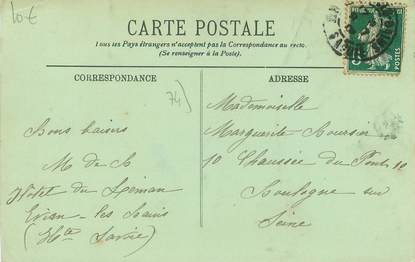 10€
CARTE POSTALE
Tous les Pays étrangers n'acceptent pas la Correspondance au recto.
(Se renseigner à la Poste).
CORRESPONDANCE
ADRESSE
74
Bons baisers
M de B
Hotel du Léman
Evian-les-Bains
(Hte Savoie)
Mademoiselle
Marguerite
10 Chaussée du Pont 10
Boulogne sur
Seine
POSTES